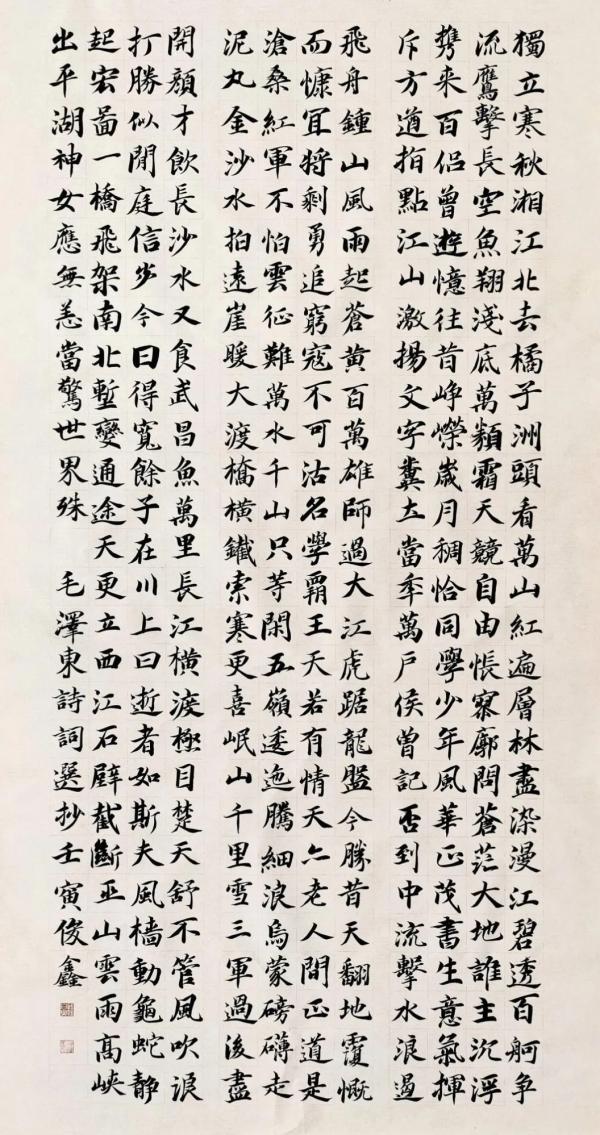 獨立寒秋湘江北去橘子洲頭看萬山紅遍層林盡染漫江碧透百舸爭
流鷹擊長空魚翔淺底萬類霜天競自由悵寥廓問蒼茫大地誰主沉浮
携来百侶曾遊憶往昔崢嶸歲月稠恰同學少年風華正茂書生意氣揮
斥方遒指點江山激揚文字糞土當年萬戶侯曾記否到中流擊水浪遏
飛舟鍾山風雨起蒼黃百萬雄師過大江虎踞龍盤今勝昔天翻地覆慨
而慷宜將剩勇追窮寇不可沽名學霸王天若有情天亦老人間正道是
滄桑紅軍不怕雲征難萬水千山只等閑五嶺逶迤騰細浪烏蒙磅礴走
泥丸金沙水拍遠崖暖大渡橋橫鐵索寒更喜岷山千里雪三軍過後盡
開顏才飲長沙水又食武昌魚萬里長江橫渡極目楚天舒不管風吹浪
打勝似閒庭信步今日得寬餘子在川上曰逝者如斯夫風檣動龜蛇静
起宏啚一橋飛架南北塹變通途天更立西江石壁截斷巫山雲雨高峽
出平湖神女應無恙當驚世界殊 毛澤東詩詞選抄壬寅俊鑫